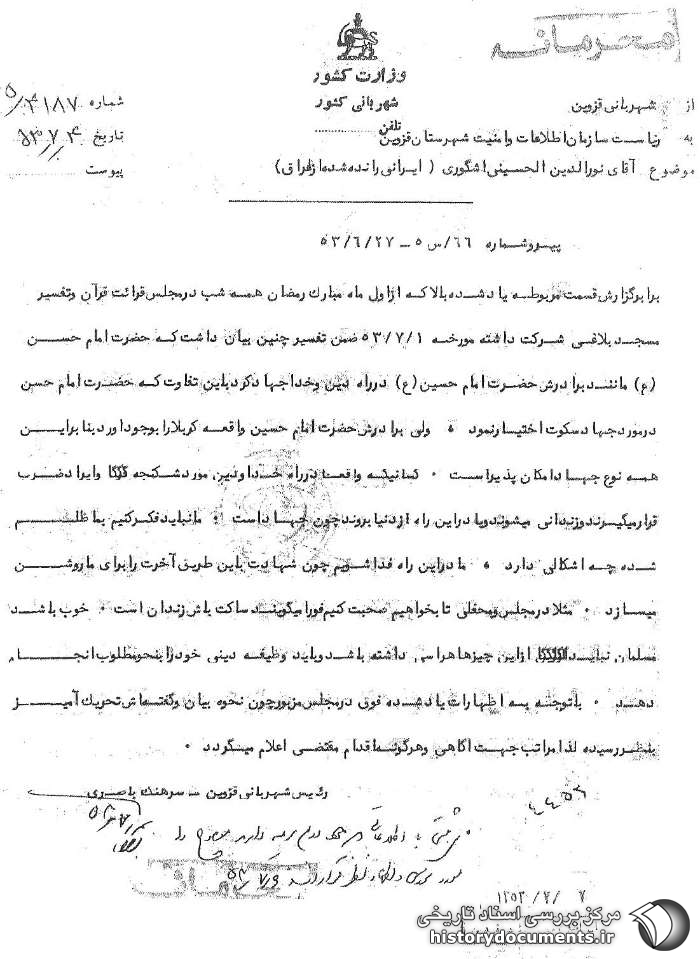 محرمانه
وزارت کشور
شهربانی کشور
از شهربانی قزوین
شماره ۵/۴۱۸۷
تلفن
به ریاست سازمان اطلاعات وامنیت شهرستان قزوین
تاریخ ۵۳/۷/۴
موضوع آقای نورالدین الحسینی اشگوری ( ایرانی رانده شده ازعراق )
پیوست
پیرو شماره ۶۶/س۵ – ۵۳/۶/۲۷
برابرگزارش قسمت مربوطه یاد شده بالا که ازاول ماه مبارك رمضان همه شب درمجلس قرائت قرآن وتفسیر
مسجد بلاغی شرکت داشته مورخه ۵۳/۷/۱ ضمن تفسیر چنین بیان داشت که حضرت امام حسن
(ع) مانند برادرش حضرت امام حسین (ع) درراه دین وخدا جهاد کرد باین تفاوت که حضرت امام حسن
درمورد جهاد سکوت اختیار نمود ۰ ولی برادرش حضرت امام حسین واقعه کربلا را بوجود اورد بنا براین
همه نوع جهاد امکان پذیر است ۰ کمانیکه واقعا درراه خدا ودین مورد شکنجه وایراد ضرب
قرارمیگیرند وزندانی میشوند ویا دراین راه ازدنیا بروند چون جهاد است ۰ مانباید فکرکنیم بما ظلم
شده چه اشکالی دارد ۰ ما دراین راه فدا شویم چون شهادت باین طریق آخرت را برای ما روشن
میسازد ۰ مثلا درمجلس ومحفلی تا بخواهیم صحبت کنیم فورا میگویند ساکت باش زندان است ۰ خوب باشد
مسلمان نباید ازاین چیزها هراسی داشته باشد وباید وظیفه دینی خود را بنحو مطلوب انجام
دهد ۰ باتوجه به اظهارات یاد شده فوق درمجلس مزبور چون نحوه بیان وگفته هاش تحریك آمیز
بنظر رسیده لذا مراتب جهت آگاهی وهرگونه اقدام مقتضی اعلام میگردد ۰
رئیس شهربانی قزوین – سرهنك باصری
را
مورد
۱۳۵۳/۷/۷
مرکز بررسی اسناد تاریخی
historydocuments.ir